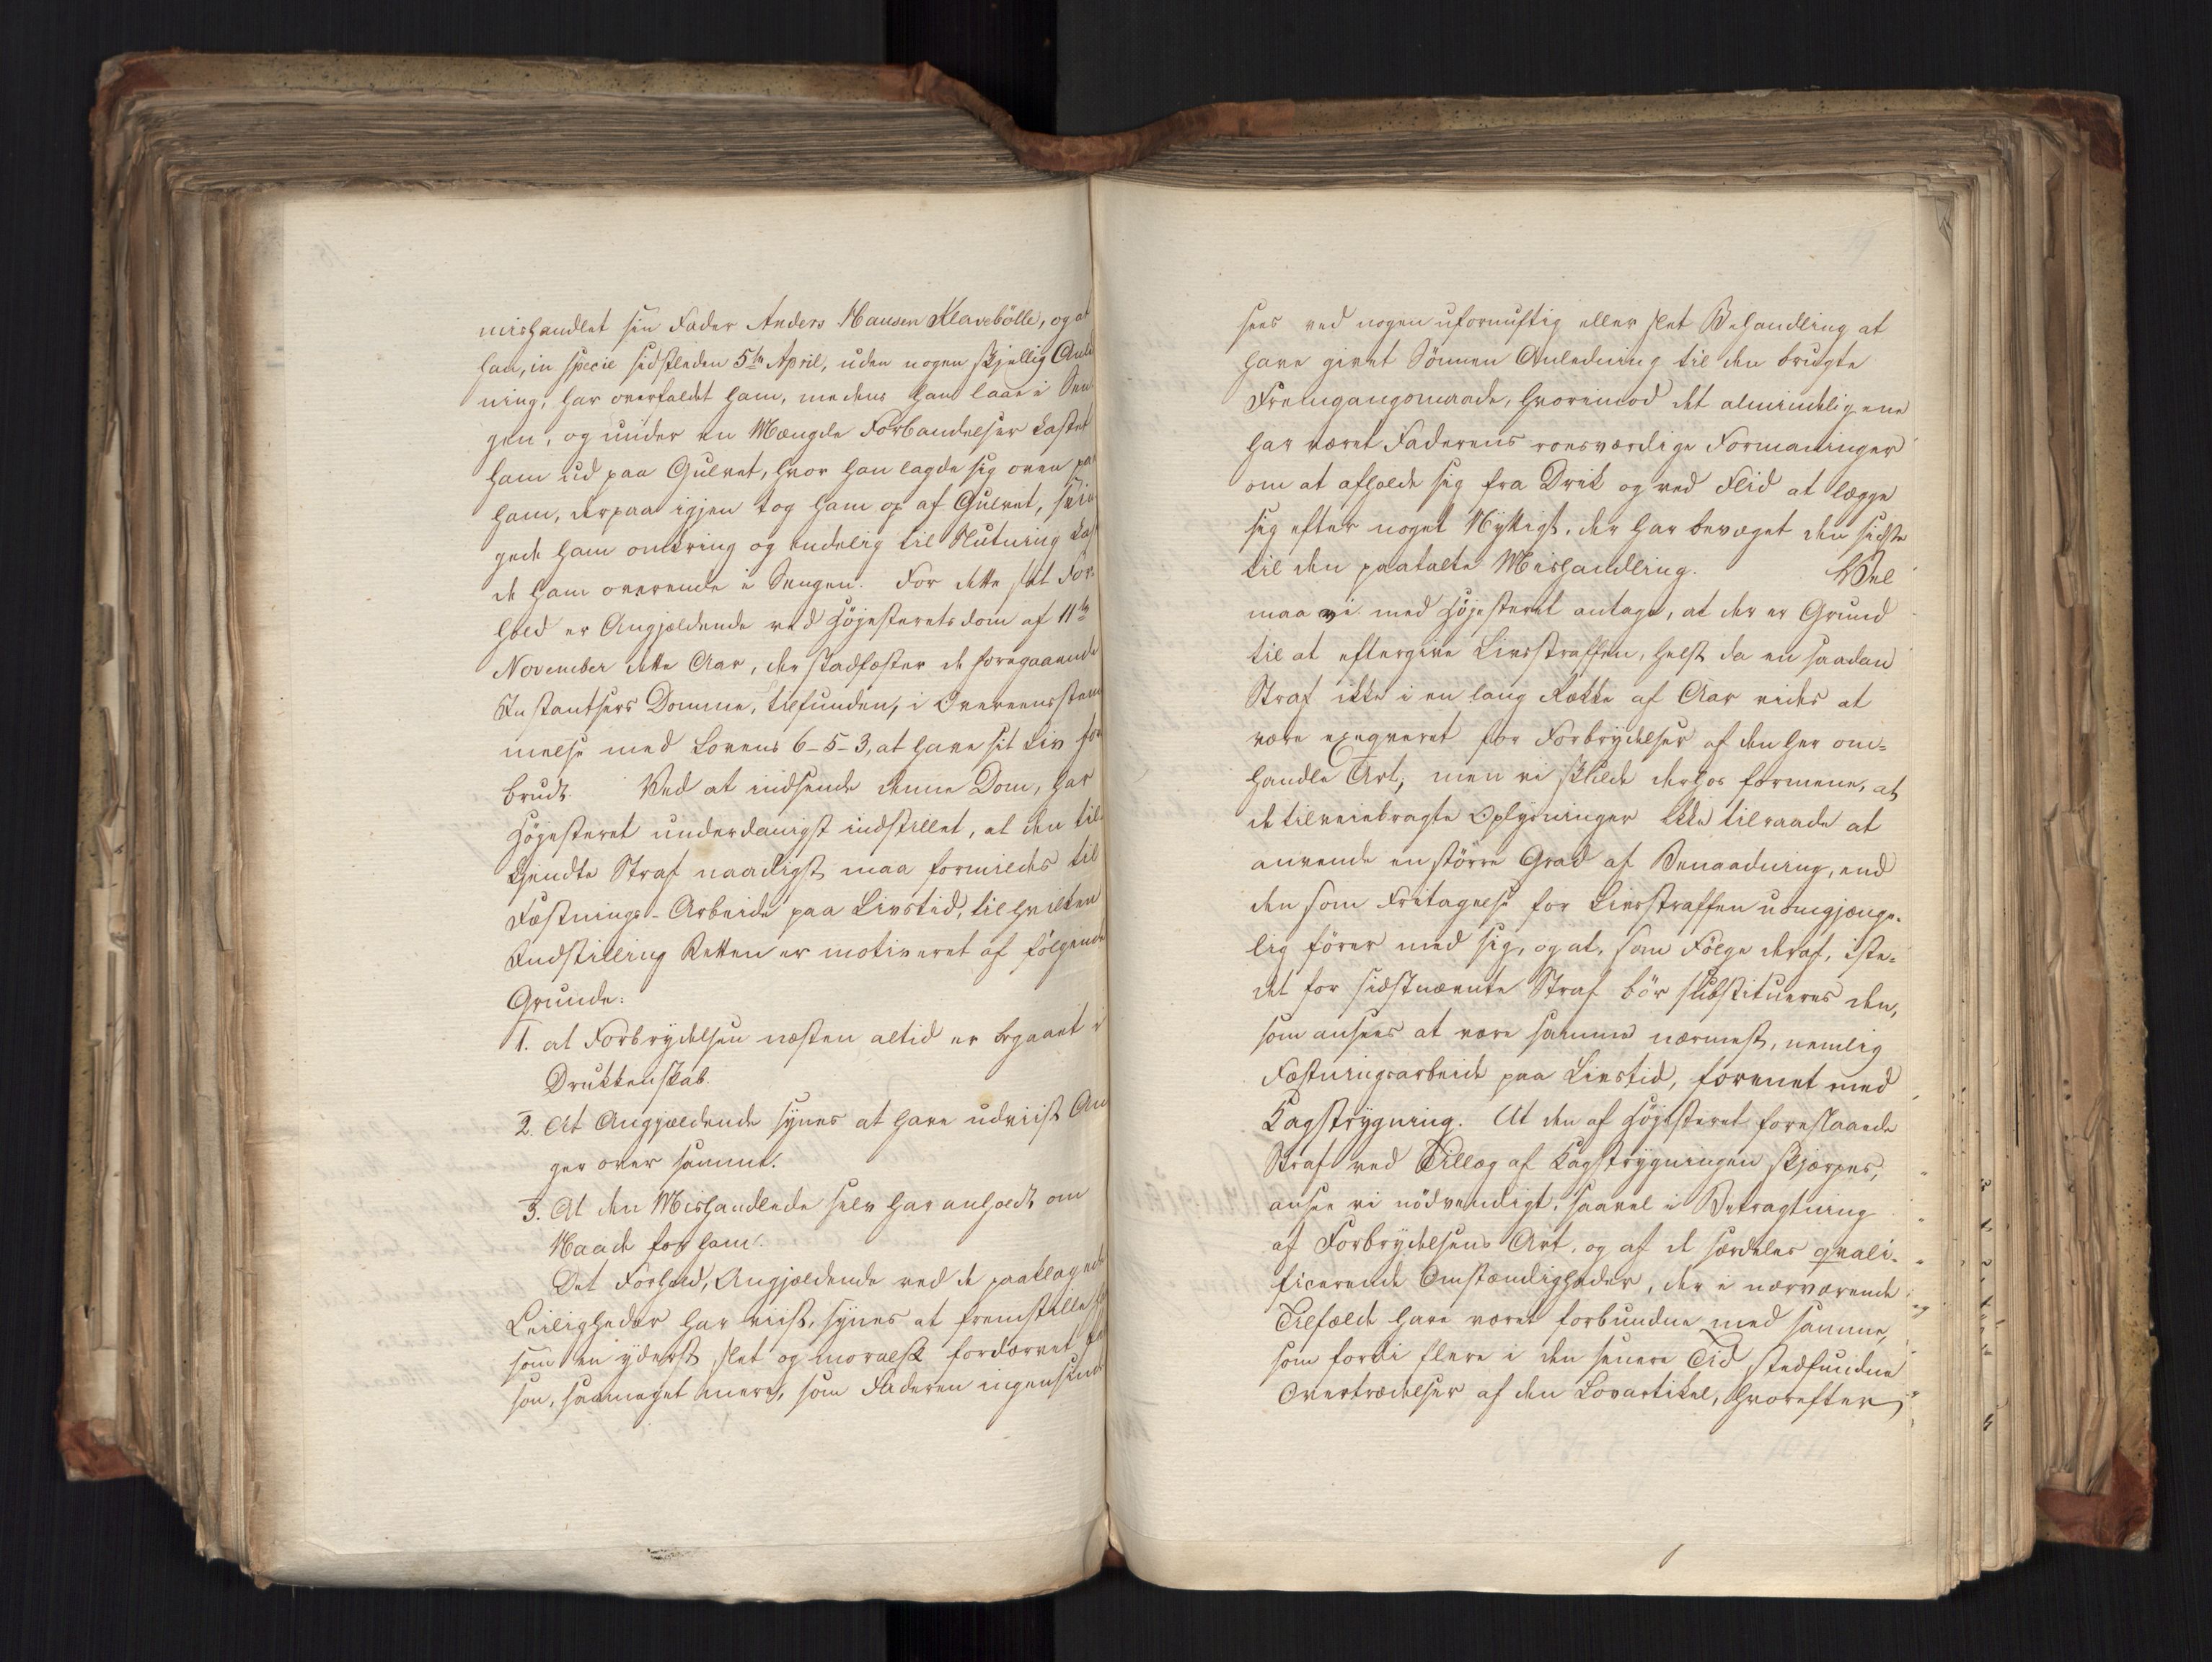 mishandlet sin Fader Anders Hansen Klavebölle, og at
han, in specie sidstleden 5te April, uden nogen skjellig Anled
ning, har overfaldet ham, medens han laae i Sen
gen, og under en Mængde Forbandelser kastet
ham ud paa Gulvet, hvor han lagde sig oven paa
ham, derpaa igjen tog ham op af Gulvet, svin
gede ham omkring og endelig til Slutning kas
de ham overende i Sengen. For dette slet For-
hold er Angjældende ved Höjesteretsdom af 11te
November dette Aar, der stadfæster de foregaaende
Instantsers Domme, tilfunden, i Overeensstem
melse med Lovens 6-5-3, at have sit Liv for
brudt. Ved at indsende denne Dom, har
Höjesteret underdanigst indstillet, at den til-
kjendte Straf naadigst maa formildes til
Fæstnings-Arbeide paa Livstid, til hvilken
Indstilling Retten er motiveret af fölgende
Grunde:
1. at Forbrydelsen næsten altid er begaaet i
Drukkenskab.
2. At Angjældende synes at have udviist An
ger over samme.
3. At den Mishandlede selv har anholdt om
Naade for ham.
Det Forhold, Angjældende ved de paaklagede
Leiligheder har viist, synes at fremstille
som en yderst slet og moralsk fordærvet
son, saameget mere, som Faderen ingensinde
sees ved nogen ufornuftig eller slet Behandling at
have givet Sönnen Anledning til den brugte
Fremgangsmaade, hvorimod det almindeligen
har været Faderens roesværdige Formaninger
om at afholde sig fra Drik og ved Flid at lægge
sig efter noget Nyttigt, der har bevæget den sidste
til den paatalte Mishandling. Vel
maa vi med Höjesteret antage, at der er Grund
til at eftergive Livsstraffen, helst da en saadan
Straf ikke i en lang Række af Aar vides at
være exeqveret for Forbrydelser af den her om-
handlede Art; men vi skulde derhos formene, at
de tilveiebragte Oplysninger ikke tilraade at
anvende en större Grad af Benaadning, end
den som Fritagelse for Livsstraffen uomgjænge-
lig förer med sig, og at, som Fölge deraf, iste-
det for sidstnævnte Straf bör substitueres den,
som ansees at være samme nærmest, nemlig
Fæstningsarbeide paa Livstid, forenet med
Kagstrygning. At den af Höjesteret foreslaaede
Straf ved Tillæg af Kagstrygningen skjærpes,
ansee vi nödvendigt, saavel i Betragtning
af Forbrydelsens Art, og af de særdeles qvali-
ficerende Omstændigheder, der i nærværende
Tilfælde have været forbundne med samme,
som fordi flere i den senere Tid stedfundne
Overtrædelser af den Lovartikel, hvorefter